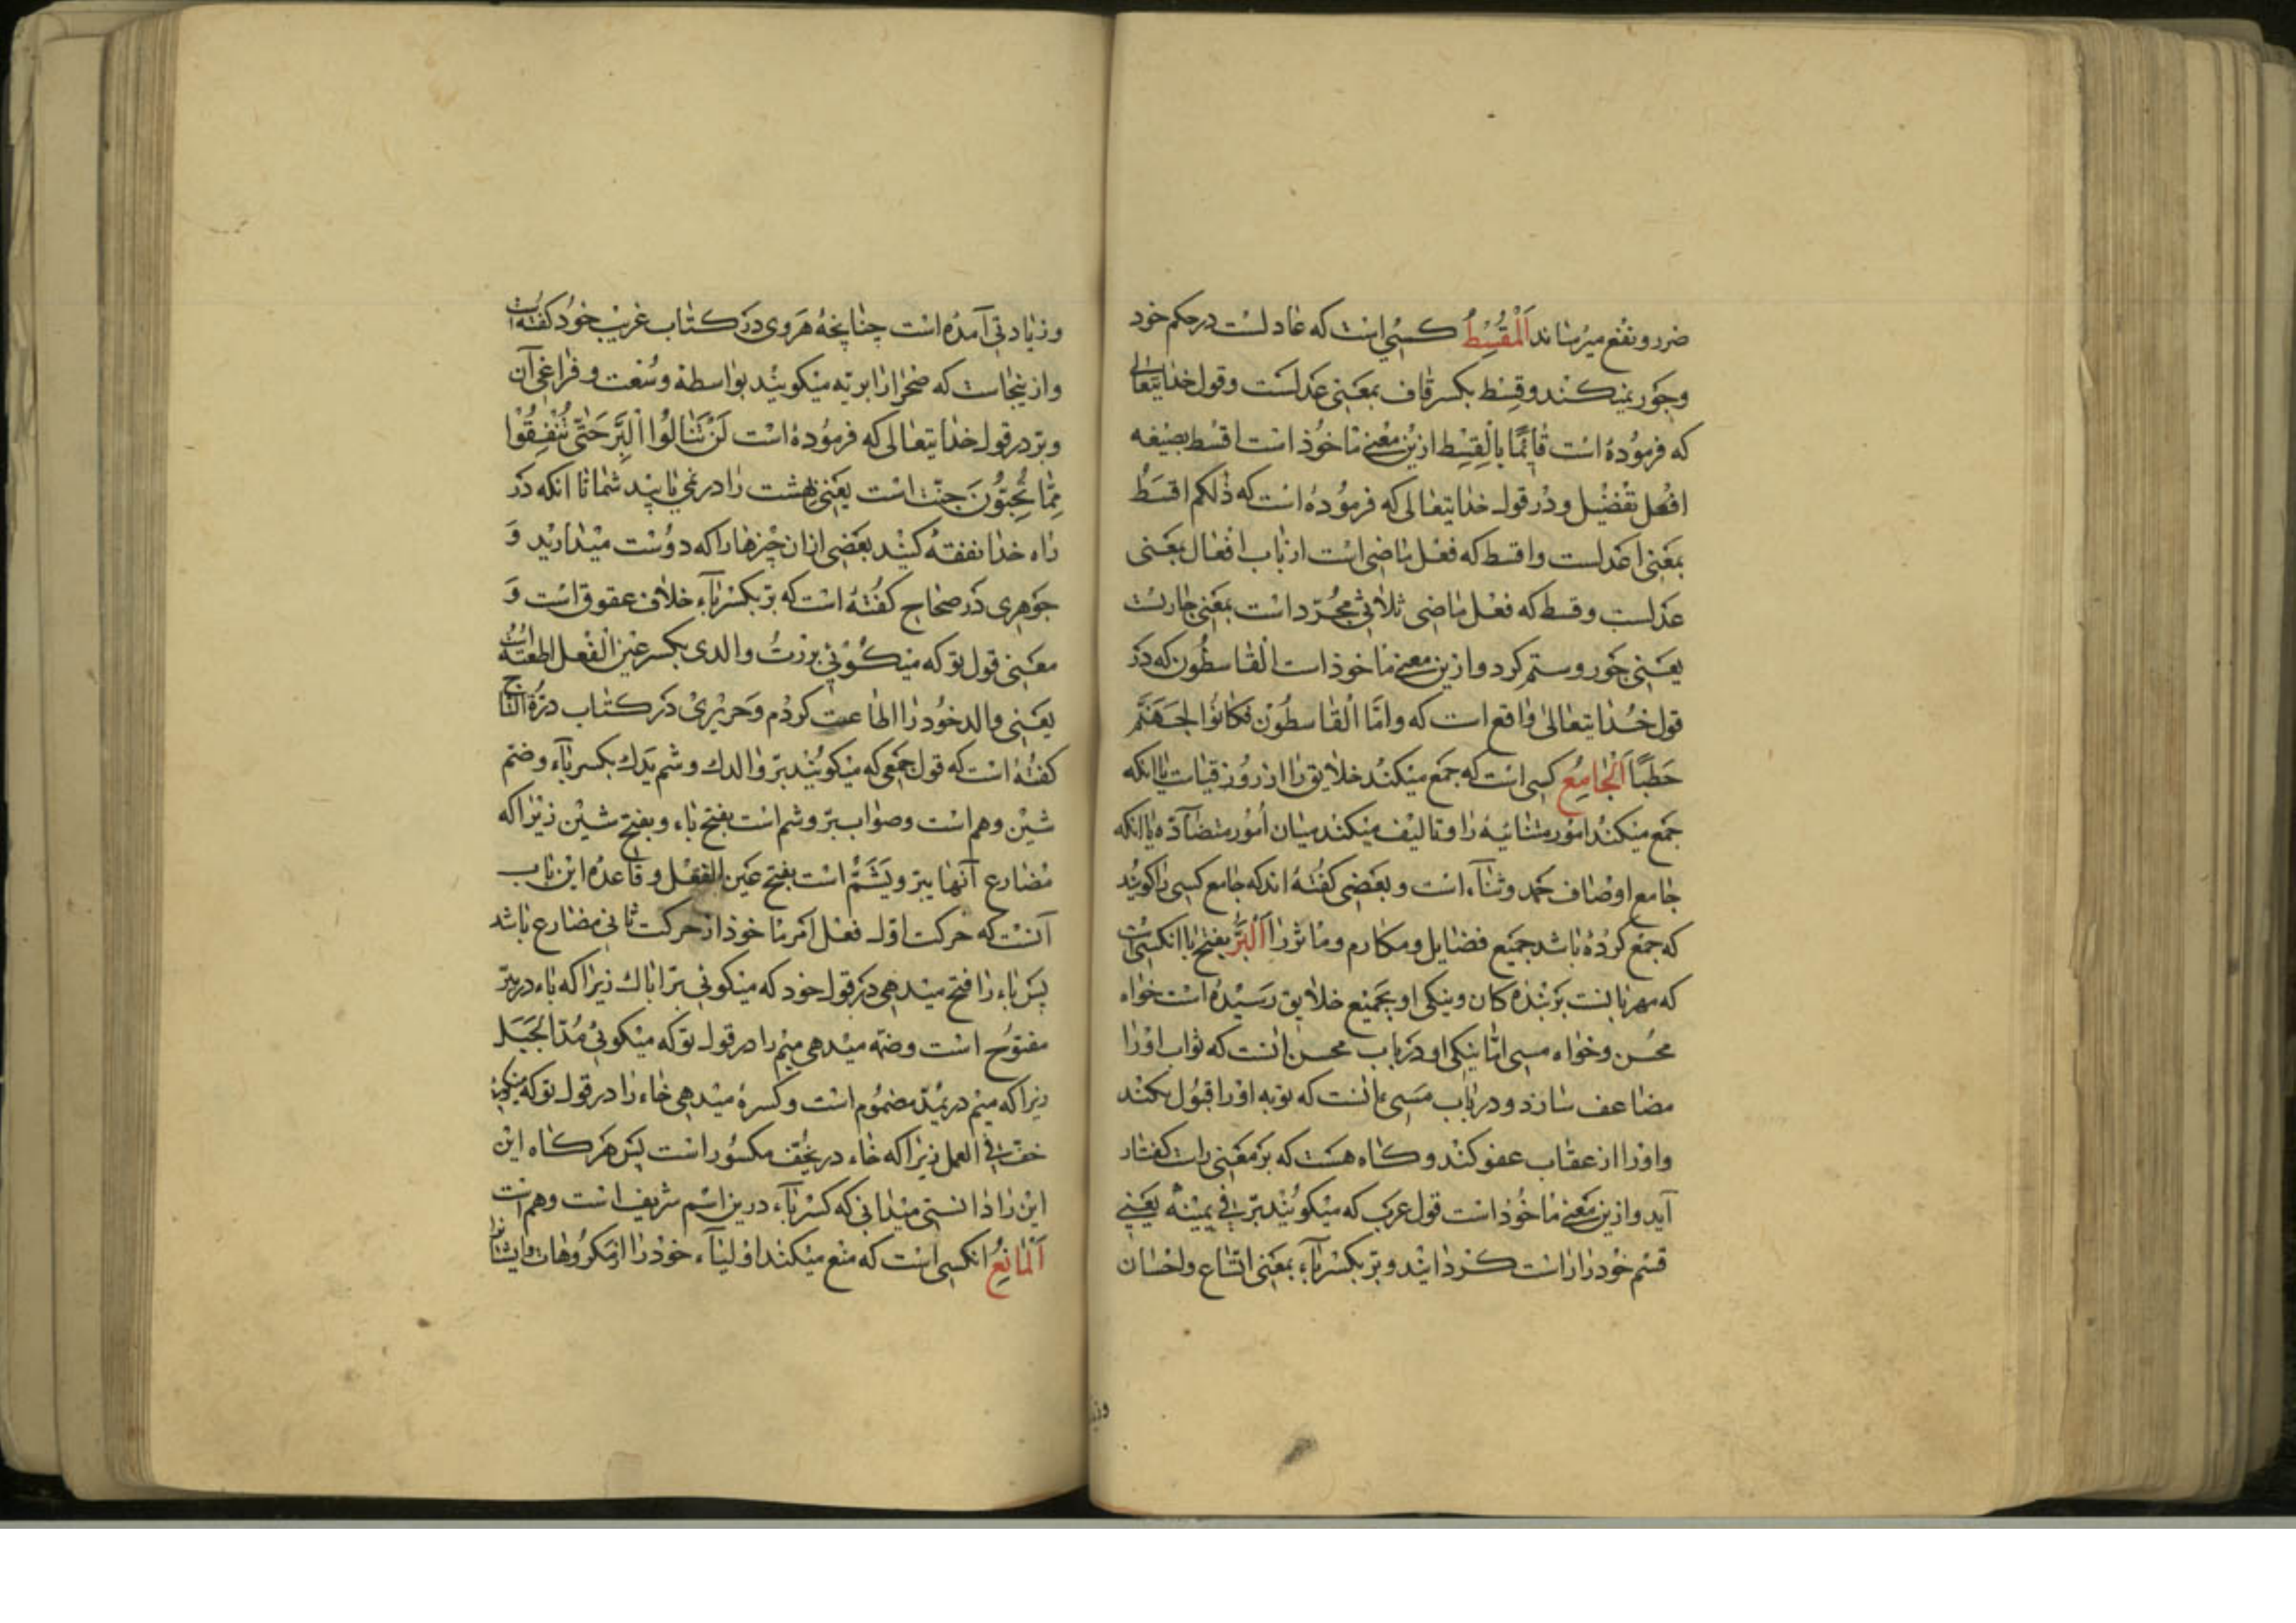 ضرر و نفع میرساند اَلْمُقْسِطُ کسی است که عادلست در حکم خود
و جور نمیکند و قِسْط بکسر قاف بمعنی عدلست و قول خدایتعالی
که فرموده است قَائِمًا بِالْقِسْطِ ازین معنی ماخوذ است اقسط بصیغه
افعل تفضیل و در قول خدایتعالی که فرموده است که ذٰلکم اقسَطُ
بمعنی اعدلست و اقسط که فعل ماضی است از باب افعال بمعنی
عدلست و قسط که فعل ماضی ثلاثی مجرّد است بمعنی جارست
یعنی جور و ستم کرد و ازین معنی ماخوذ است القاسطون که در
قول خدایتعالی واقع است که وامّا القاسطون فکانوا لجهنّم
حَطَبًا اَلْجَامِعُ کسی است که جمع میکند خلایق را از روز قیامت یا انکه
جمع میکند امور متشابهه را و تالیف میکند میان امور متضآدّه یا انکه
جامع اوصاف حمد و ثنآء است و بعضی گفته اند که جامع کسی را کویند
که جمع کرده باشد جمیع فضایل و مکارم و مآثر را اَلْبَرُّ بفتح با انکسی است
که مهربانست بر بنده کان و نیکی او بجمیع خلایق رسیده است خواه
محسن و خواه مسی امّا نیکی او در باب محسن بانست که ثواب او را
مضاعف سازد و در باب مسیء بانست که توبه او را قبول کند
و او را از عقاب عفو کند و کاه هست که بر معنی راست کفتار
آید و ازین معنی ماخوذ است قول عرب که میکویند بَرَّ فی یمینه یعنی
قسم خود را راست کردانید و برّ بکسر بآء بمعنی اتّساع و احسان
و زیادتی آمده است چنانچه هروی در کتاب غریب خود کفته است
و ازینجاست که صحرا را بریّه میکویند بواسطه وسعت و فراغی آن
و برّ در قول خدایتعالی که فرموده است لَنْ تَنَالُوا الْبِرَّ حَتّٰی تُنْفِقُوْا
مِمَّا تُحِبُّونَ جنّت است یعنی بهشت را در نمی یابید شما تا انکه در
راه خدا نفقه کنید بعضی ازان چیزها را که دوست میدارید و
جوهری در صحاح کفته است که برّ بکسر بآء خلاف عقوق است و
معنی قول تو که میکوئی بررتُ والدی بکسر عین الفعل اطعته است
یعنی والد خود را اطاعت کردم و حریری در کتاب درّة التاج
کفته است که قول جمعی که میکویند برّ والدك و شم یدك بکسر بآء و ضم
شین وهم است و صواب برّ و شم است بفتح باء و بفتح شین زیرا که
مضارع آنها یبرّ و یَشَمُّ است بفتح عین الفعل و قاعده این باب
آنست که حرکت اول فعل امر ماخوذ از حرکت ثانی مضارع باشد
پس باء را فتح میدهی در قول خود که میکوئی برّ اباك زیرا که باء در یبرّ
مفتوح است و ضمّه میدهی میم را در قول تو که میکوئی مُدّ الحَبَل
زیرا که میم در یمُدّ مضموم است و کسره میدهی خاء را در قول تو که میکوئی
خفّ فی العمل زیرا که خاء در یخفّ مکسور است پس هر کاه این
این را دانستی میدانی که کسر بآء درین اسم شریف است وهم است
اَلْمَانِعُ انکسی است که منع میکند اولیآء خود را از مکروهات و ایشانرا